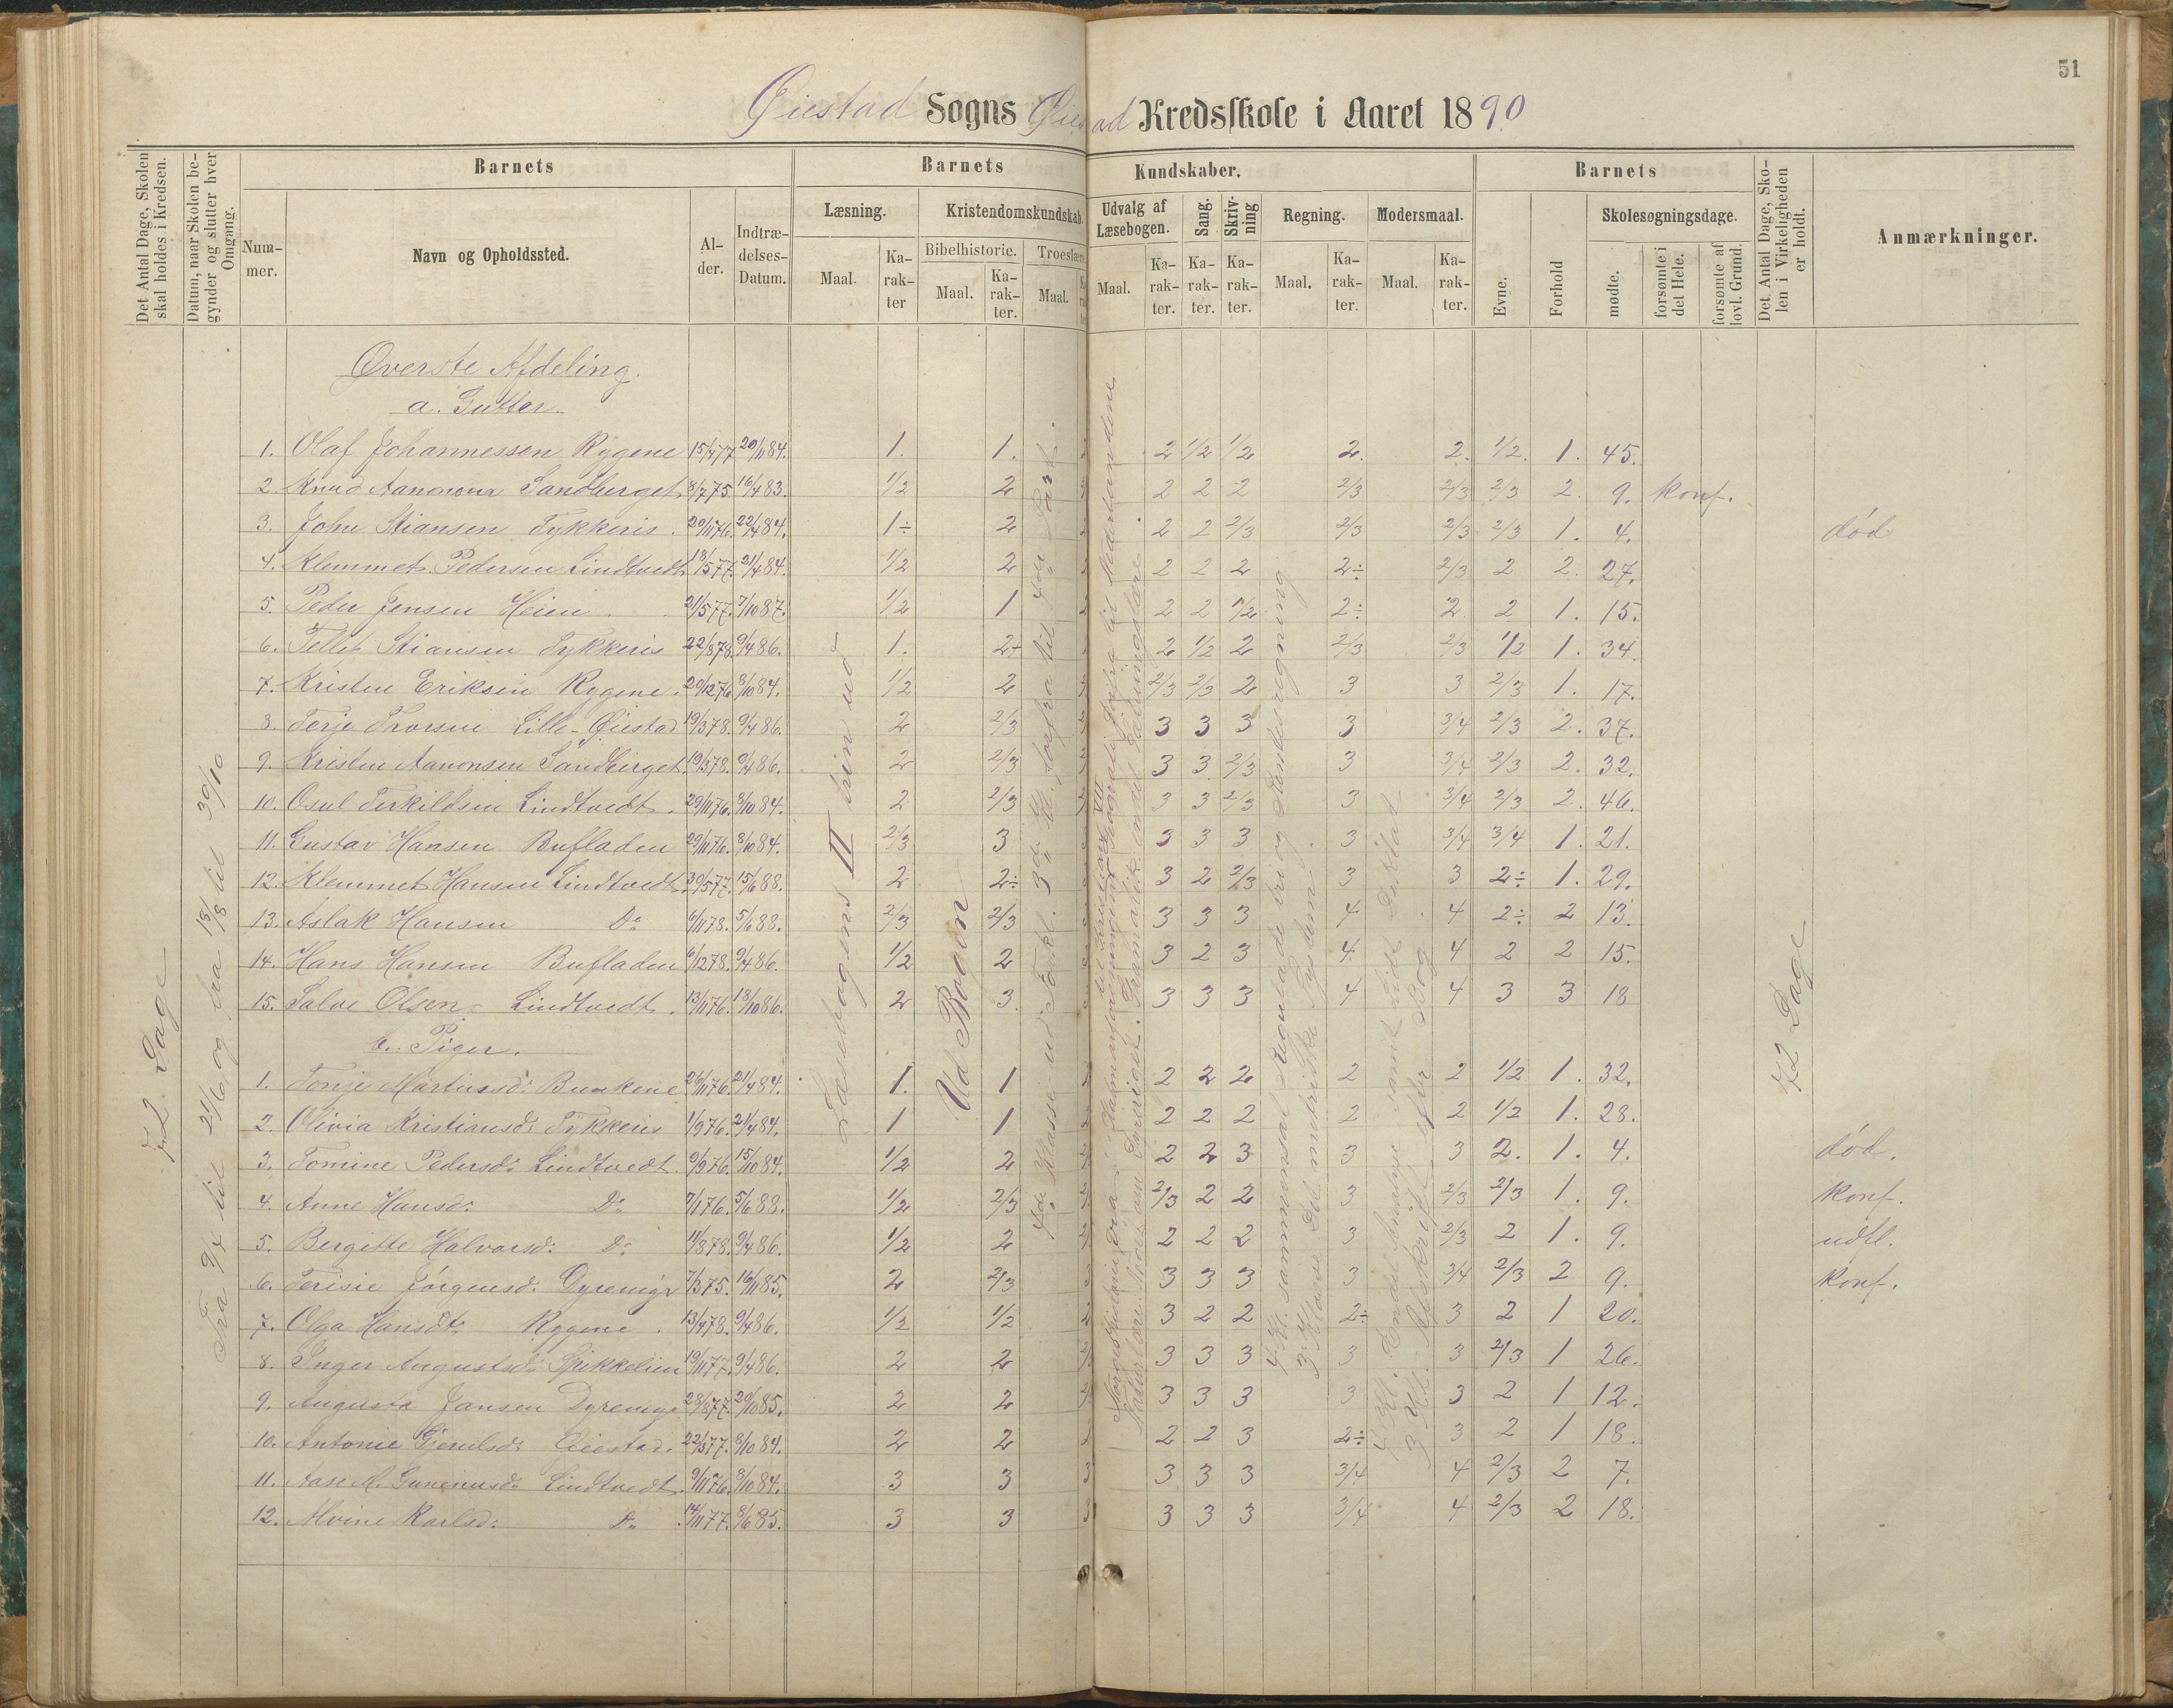 51
Øiestad Sogns Øiestad Kredsskole i Aaret 1890
Det Antal Dage, Skolen skal holdes i Kredsen.
Datum, naar Skolen begynder og slutter hver Omgang.
Barnets
Nummer.
Navn og Opholdssted.
Alder.
Indtrædelses-Datum.
Barnets Kundskaber.
Læsning.
Maal.
Karakter
Kristendomskundskab.
Bibelhistorie.
Maal.
Karakter.
Troeslære
Maal.
Udvalg af Læsebogen.
Maal.
Karakter.
Sang.
Karakter.
Skrivning
Karakter.
Regning.
Maal.
Karakter.
Modersmaal.
Maal.
Karakter.
Barnets
Evne.
Forhold
Skolesøgningsdage.
mødte.
forsømte i det Hele.
forsømte af lovl. Grund.
Det Antal Dage, Skolen i Virkeligheden er holdt.
Anmærkninger.
72 Dage
Fra 9/4 til 21/6 og fra 18/8 til 30/10
Læsebogens II trin ud
Ud Bogen
72 Dage
Øverste Afdeling.
a. Gutter
1. Olaf Johannessen Rygene 15/4 77 20/11 84. 1. 1. 2 1/2 1/2 2. 2. 1/2. 1. 45.
2. Knud Aanonsen Sandberget 8/7 75. 16/4 83. 1/2 2 2 2 2 2/3 2/3 2/3 2. 9. konf.
3. John Stiansen Tykkeris. 20/11 76. 22/4 84. 1÷ 2 2 2 2/3 2/3 2/3 2/3 1. 4. død
4. Klemmet Pedersen Lindtvedt 18/5 77. 21/4 84. 1/2 2 2 2 2 2÷ 2/3 2 2. 27.
5. Peder Jensen Heien 21/5 77. 7/10 87. 1/2 1 2 2 1/2 2÷ 2 2 1. 15.
6. Tellef Stiansen Tykkeris 22/8 78. 9/4 86. 1. 2+ 2 1/2 2 2/3 2/3 1/2 1. 34.
7. Kristen Eriksen Rygene. 20/12 76 8/10 84. 1/2 2 2/3 2/3 2 3 3 2/3 1. 17.
8. Terje Thorsen Lille-Øiestad 19/3 78. 9/4 86. 2 2/3 3 3 3 3 3/4 2/3 2. 37.
9. Kristen Aanonsen Sandberget. 19/3 78. 9/4 86. 2 2/3 3 3 2/3 3 3/4 2/3 2. 32.
10. Osul Terkildsen Lindtvedt. 29/11 76. 8/10 84. 2 2/3 3 3 2/3 3 3/4 2/3 2. 46.
11. Gustav Hansen Bufladen 29/11 76. 8/10 84. 2/3 3 3 3 3 3 3/4 3/4 1. 21.
12. Klemmet Hansen Lindtvedt. 30/5 77. 15/6 88. 2 2÷ 3 2 2/3 3 3 2÷ 1. 29.
13. Aslak Hansen Do 6/11 78. 5/6 88. 2/3 2/3 3 3 3 4 4 2÷ 2 13.
14. Hans Hansen Bufladen 6/12 78. 9/4 86. 1/2 2 3 2 3 4. 4 2 2 15.
15. Salve Olsen Lindtvedt. 13/11 76. 18/10 86. 2 3 3 3 3 4 4 3 3 18
b. Piger.
1. Tonje Martinsd: Bunkene 26/11 76. 21/4 84. 1. 1 2 2 2 2 2 1/2 1. 32.
2. Olivia Kristiansd: Tykkeris 1/9 76. 21/4 84. 1 1 2 2 2 2 2 1/2 1. 28.
3. Tomine Pedersd: Lindtvedt. 9/9 76. 15/10 84. 1/2 2 2 2 3 3 3 2. 1. 4. død.
4. Anne Hansd: Do 7/1 76. 5/6 88. 1/2 2/3 2/3 2 2 3 2/3 2/3 1. 9. konf.
5. Bergitte Halvorsd: Do 11/8 78. 9/4 86. 1/2 2 2 2 2 3 2/3 2 1. 9. udfl.
6. Terisie Jörgensd. 7/3 75. 16/11 85. 2 2/3 3 3 3 3 3/4 2/3 2 9. konf.
7. Olga Hansdt: Rygene. 13/4 78. 9/4 86. 1/2 1/2 3 2 2 2÷ 3 2 1 20.
8. Inger Augustsd: 19/11 77. 9/4 86. 2 2 3 3 3 3 3 2/3 1 26.
9. Augusta Jansen Dyremyr 28/8 77. 20/10 85. 2 2 3 3 3 3 3 2 1 12.
10. Antonie Øiestad. 22/3 77. 8/10 84. 2 2 2 2 3 2÷ 3 2 1 18.
11. Aase M. Lindtvedt. 9/11 76. 8/10 84. 3 3 3 3 3 3/4 4 2/3 2 7.
12. Alvine Karlsd: Do 14/11 77. 8/6 85. 3 3 3 3 3 3/4 4 2/3 2 18.